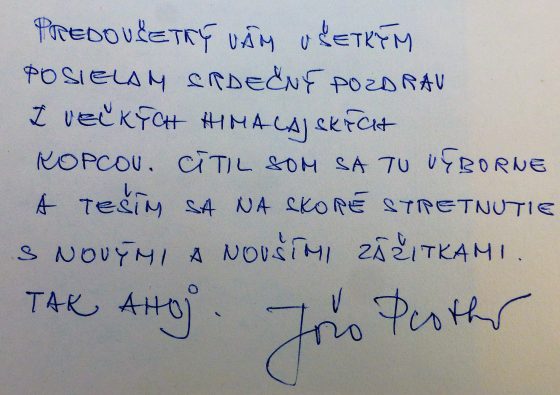 PREDOVŠETKÝM VÁM VŠETKÝM
POSIELAM SRDEČNÝ POZDRAV
Z VEĽKÝCH HIMALAJSKÝCH
KOPCOV. CÍTIL SOM SA TU VÝBORNE
A TEŠÍM SA NA SKORÉ STRETNUTIE
S NOVÝMI A NOVŠÍMI ZÁŽITKAMI.
TAK AHOJ. Jožo